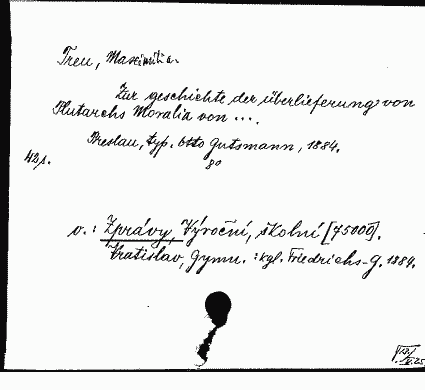 Treu, Maximilian
Zur geschichte der überlieferung von
Plutarchs Moralia von ....
Breslau, typ. Otto Gutsmann, 1884.
8o
42p.
v.: Zprávy, Výroční, školní [75000].
Vratislav, Gymn. : kgl. Friedrichs-G. 1884.